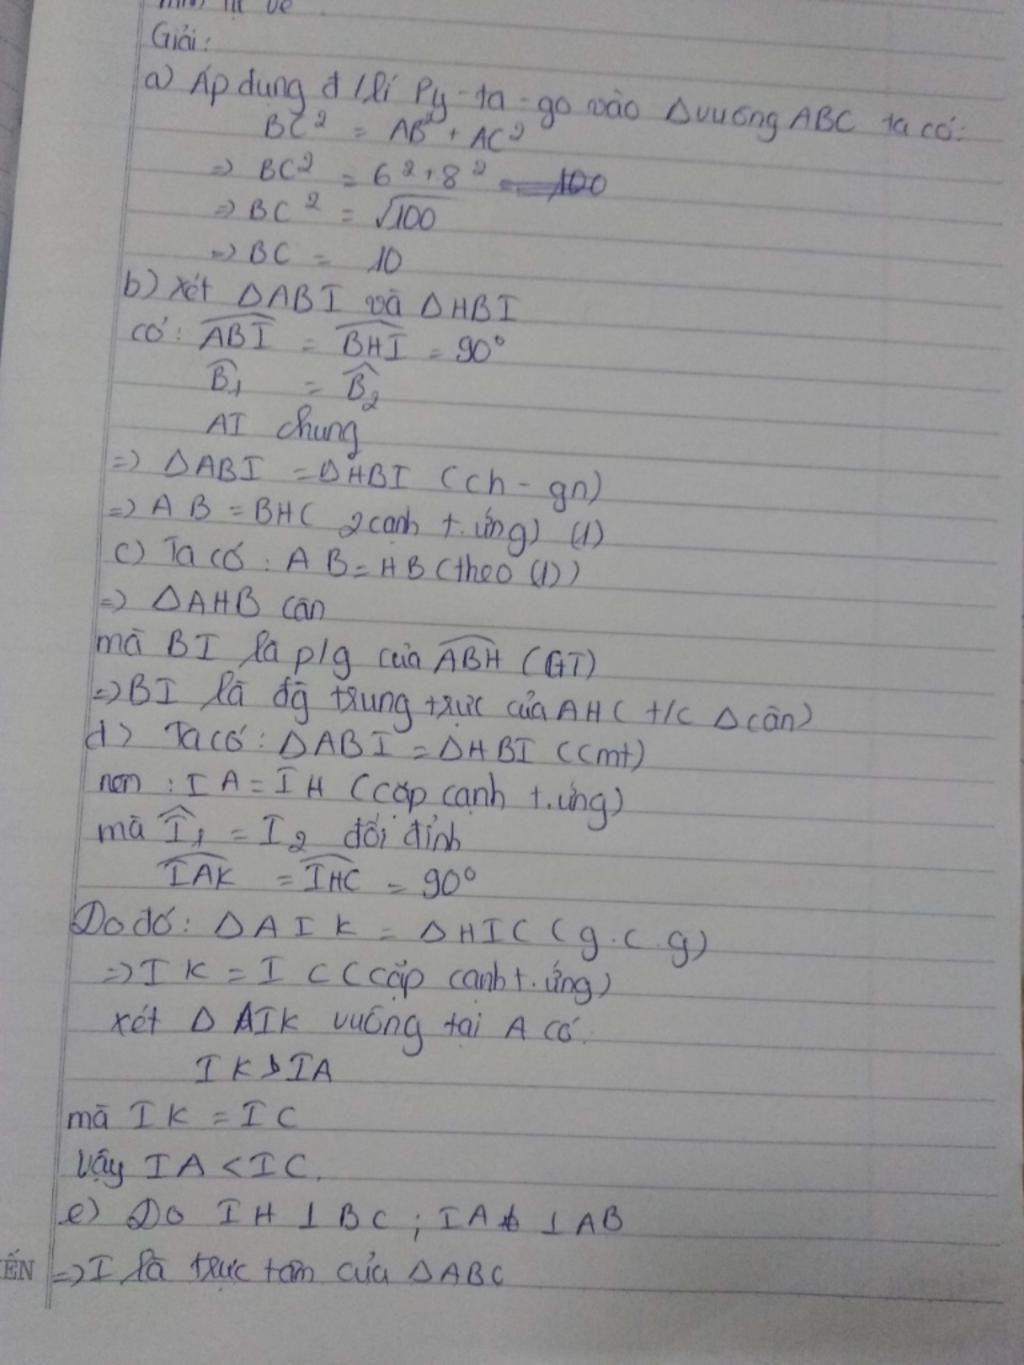 Giải:
a) Áp dụng đ/lí Py-ta-go vào Δvuông ABC ta có:
BC² = AB² + AC²
=> BC² = 6² + 8²
=> BC² = √100
=> BC = 10
b) xét ΔABI và ΔHBI
có: ABI = BHI = 90°
B₁ = B₂
AI chung
=> ΔABI = ΔHBI (ch - gn)
=> AB = BH( 2 cạnh t.ứng) (1)
c) Ta có: AB = HB (theo (1))
=> ΔAHB cân
mà BI là p/g của ABH (GT)
=> BI là đg trung trực của AH( t/c Δ cân)
d) Ta có: ΔABI = ΔHBI (cmt)
nên: IA = IH (cặp cạnh t.ứng)
mà I₁ = I₂ đối đỉnh
IAK = IHC = 90°
Do đó: ΔAIK = ΔHIC (g.c.g)
=> IK = IC (cặp cạnh t.ứng)
xét ΔAIK vuông tại A có:
IK > IA
mà IK = IC
Vậy IA < IC.
e) Do IH ⊥ BC ; IA ⊥ AB
ẾN => I là trực tâm của ΔABC